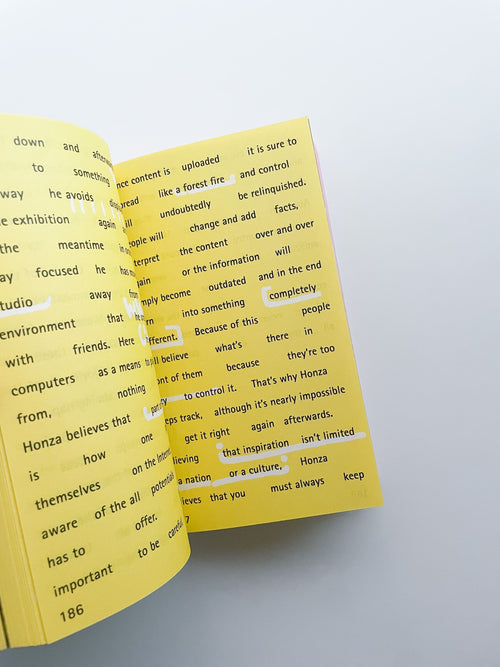 down and
to something
way he avoids
exhibition again
the meantime in
focused he has
away from
environment that
with friends. Here
computers as a means to
from, nothing
Honza believes that
is how one
themselves on the
aware of the all potential
has to offer.
important to be
186
content is uploaded it is sure to
like a forest fire and control
undoubtedly be relinquished.
will change and add facts,
the content over and over
or the information will
become outdated and in the end
into something completely
Because of this people
believe what's there in
of them because they're too
to control it. That's why Honza
track, although it's nearly impossible
get it right again afterwards.
that inspiration isn't limited
a nation or a culture, Honza
that you must always keep